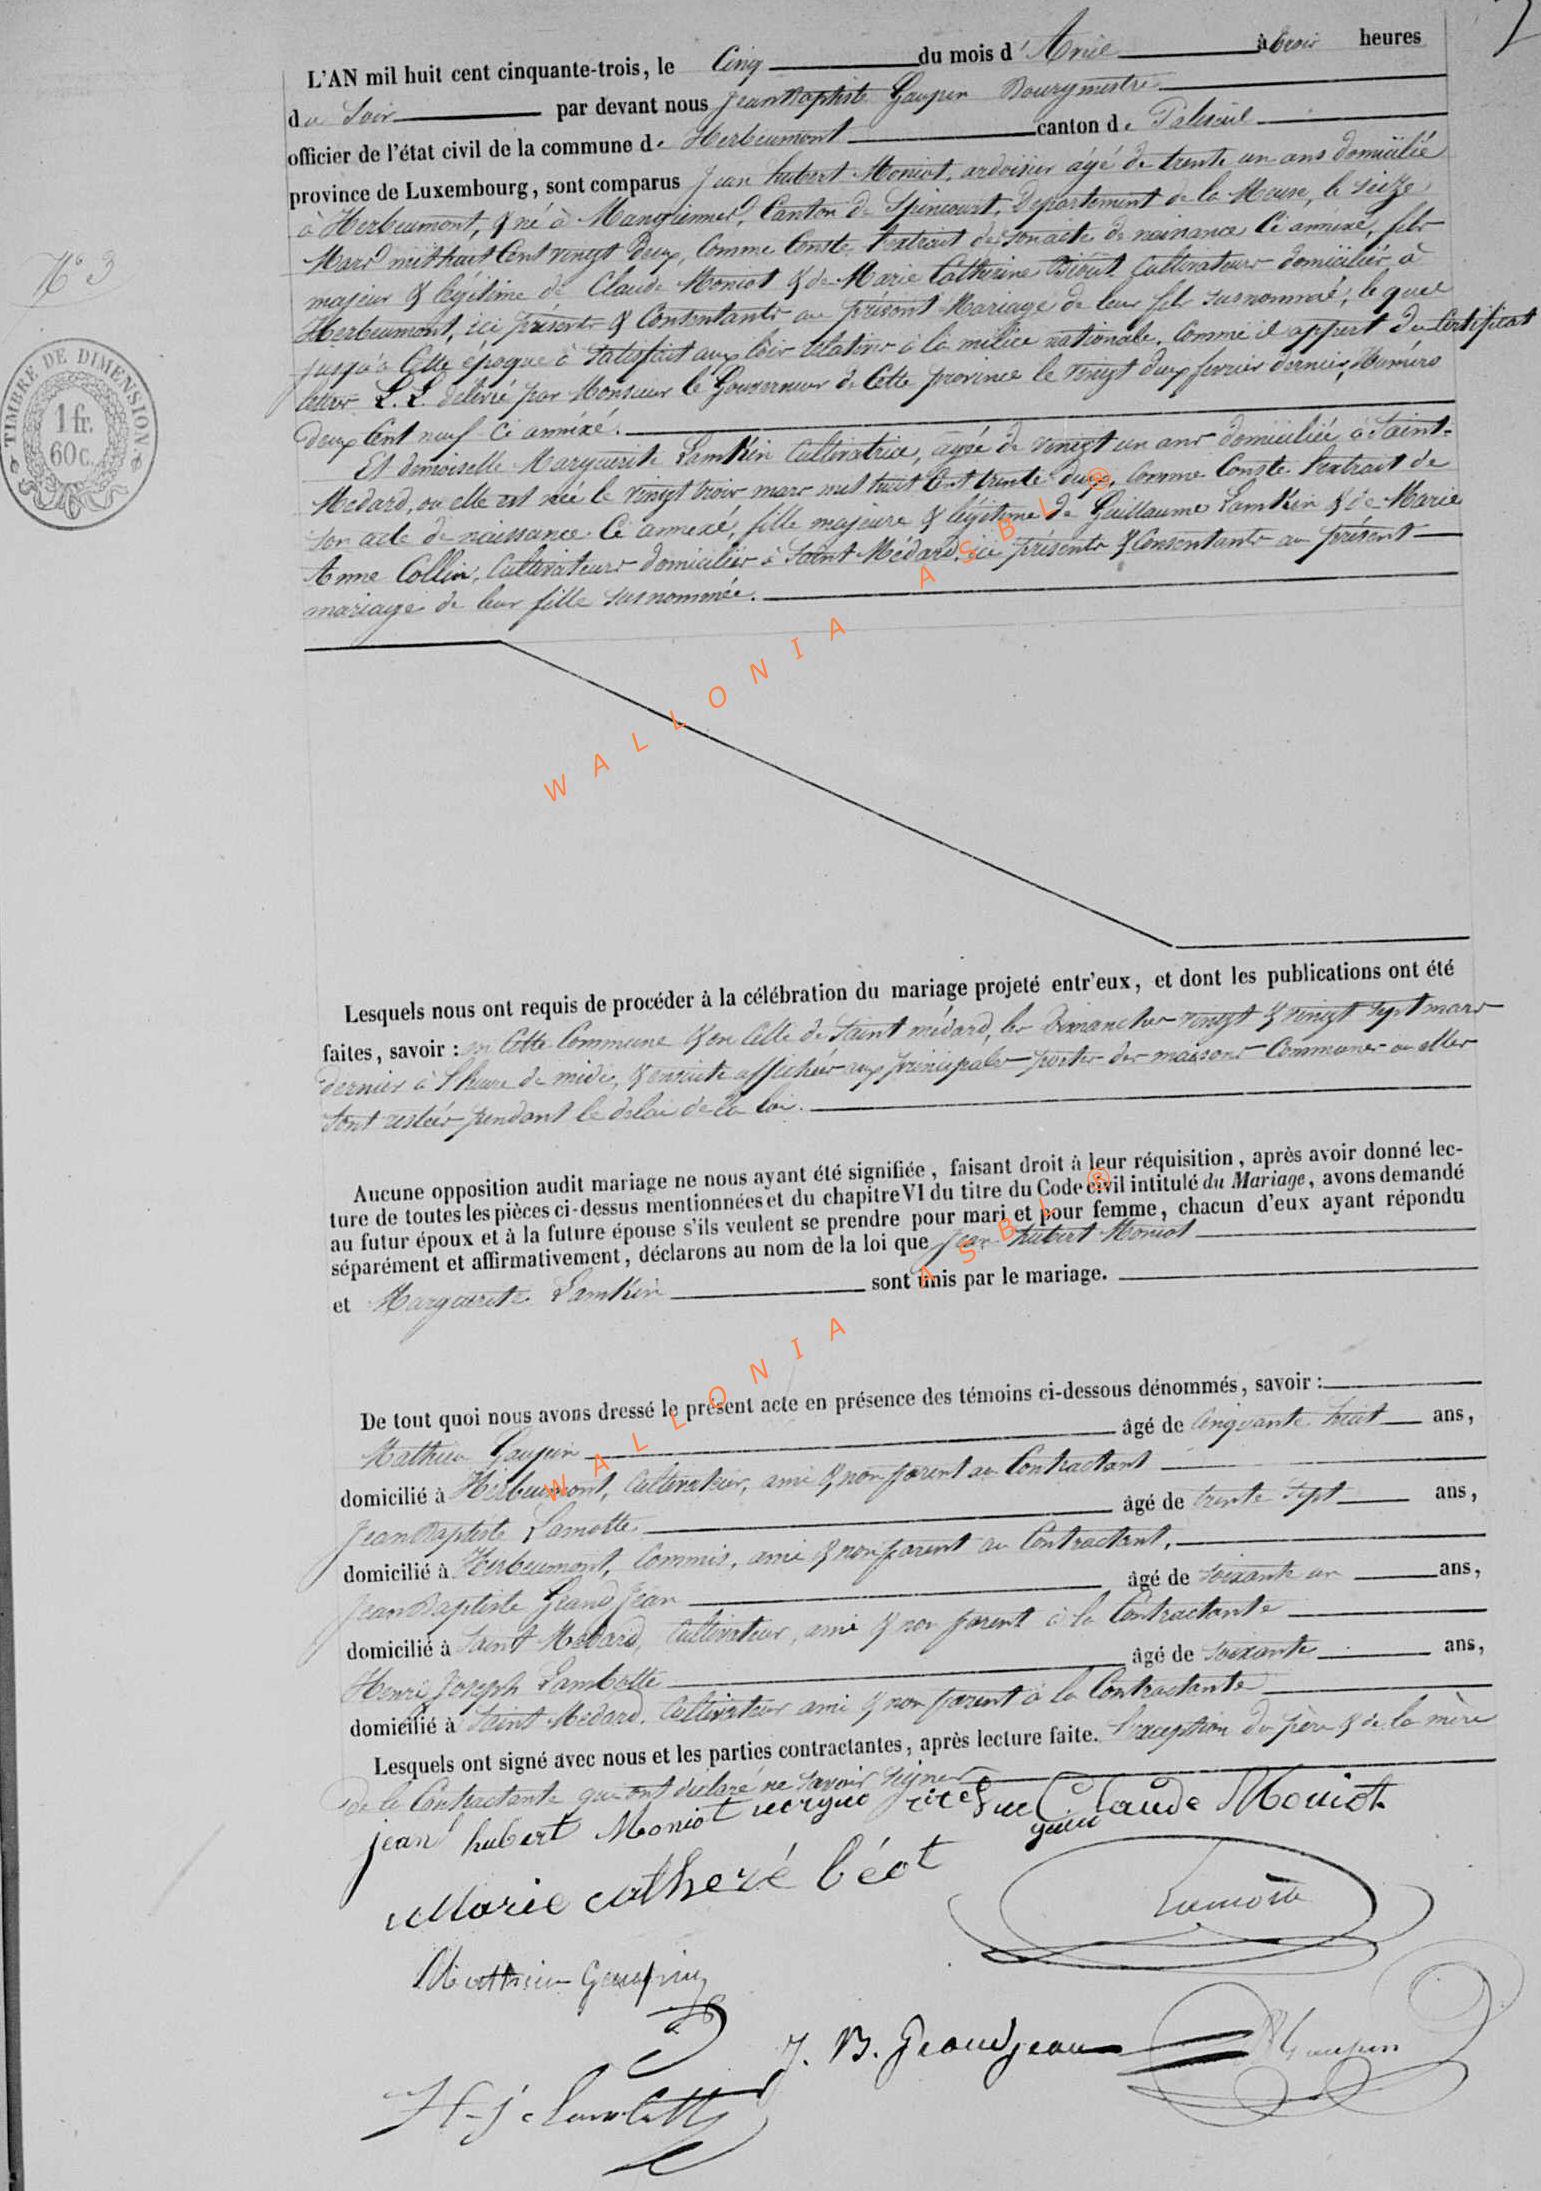 N° 3
TIMBRE DE DIMENSION
1 fr.
60c.
L'AN mil huit cent cinquante-trois, le Cinq du mois d'Avril à trois heures
du Soir par devant nous Jean Baptiste Gaupin Bourgmestre
officier de l'état civil de la commune de Herbeumont canton de Paliseul
province de Luxembourg, sont comparus Jean hubert Moniot, ardoisier agé de trente un ans domicilié
à Herbeumont, & né à Mangiennes, Canton de Spincourt, Departement de la Meuse, le seize
Mars mil huit Cent vingt Deux, Comme Conste l'extrait de son acte de naissance Ci annexé, fils
majeur & légitime de Claude Moniot & de Marie Catherine Béout Cultivateurs domiciliés à
Herbeumont, ici présents & Consentants au présent Mariage de leur fils susnommé, le quel
jusqu'à Cette époque à satisfait aux lois relatives à la milice nationale, Comme il appert du Certificat
lettres L.L. délivré par Monsieur le Gouverneur de Cette province le vingt deux fevrier dernier, Numéro
deux Cent neuf Ci annéxé.
Et demoiselle Marguerite Lamkin Cultivatrice, agée de vingt un ans domiciliée à Saint-
Medard, ou elle est née le vingt trois mars mil huit Cent trente deux, Comme Conste l'extrait de
son acte de naissance Ci annexé, fille majeure & légitime de Guillaume Lamkin & de Marie
Anne Collin, Cultivateurs domiciliés à Saint Médard, ici présents & Consentants au présent
mariage de leur fille susnommée.
WALLONIA ASBL ®
Lesquels nous ont requis de procéder à la célébration du mariage projeté entr'eux, et dont les publications ont été
faites, savoir : en Cette Commune & en Celle de Saint médard, les Dimanches vingt & vingt sept mars
dernier à l'heure de midi, & ensuite affichées aux principales portes des maisons Communes ou elles
sont restées pendant le délai de la loi.
Aucune opposition audit mariage ne nous ayant été signifiée, faisant droit à leur réquisition, après avoir donné lec-
ture de toutes les pièces ci-dessus mentionnées et du chapitre VI du titre du Code civil intitulé du Mariage, avons demandé
au futur époux et à la future épouse s'ils veulent se prendre pour mari et pour femme, chacun d'eux ayant répondu
séparément et affirmativement, déclarons au nom de la loi que Jean hubert Moniot
et Marguerite Lamkin sont unis par le mariage.
WALLONIA ASBL ®
De tout quoi nous avons dressé le présent acte en présence des témoins ci-dessous dénommés, savoir :
Mathieu Gaupin âgé de Cinquante huit ans,
domicilié à Herbeumont, Cultivateur, ami & non parent au Contractant
Jean Baptiste Lamotte âgé de trente sept ans,
domicilié à Herbeumont, Commis, ami & non parent au Contractant,
Jean Baptiste Grand Jean âgé de soixante un ans,
domicilié à Saint Médard, Cultivateur, ami & non parent à la Contractante
Henri Joseph Lambotte âgé de soixante ans,
domicilié à Saint Medard. Cultivateur ami & non parent à la Contractante
Lesquels ont signé avec nous et les parties contractantes, après lecture faite. l'exception du père & de la mère
de la Contractante qui ont declaré ne savoir signer
jean hubert Moniot Claude Moniot
Marie catheré béot
Lamotte
Mathieu Gaupin
J. B. Grandjean
Gaupin
H-j Lambotte